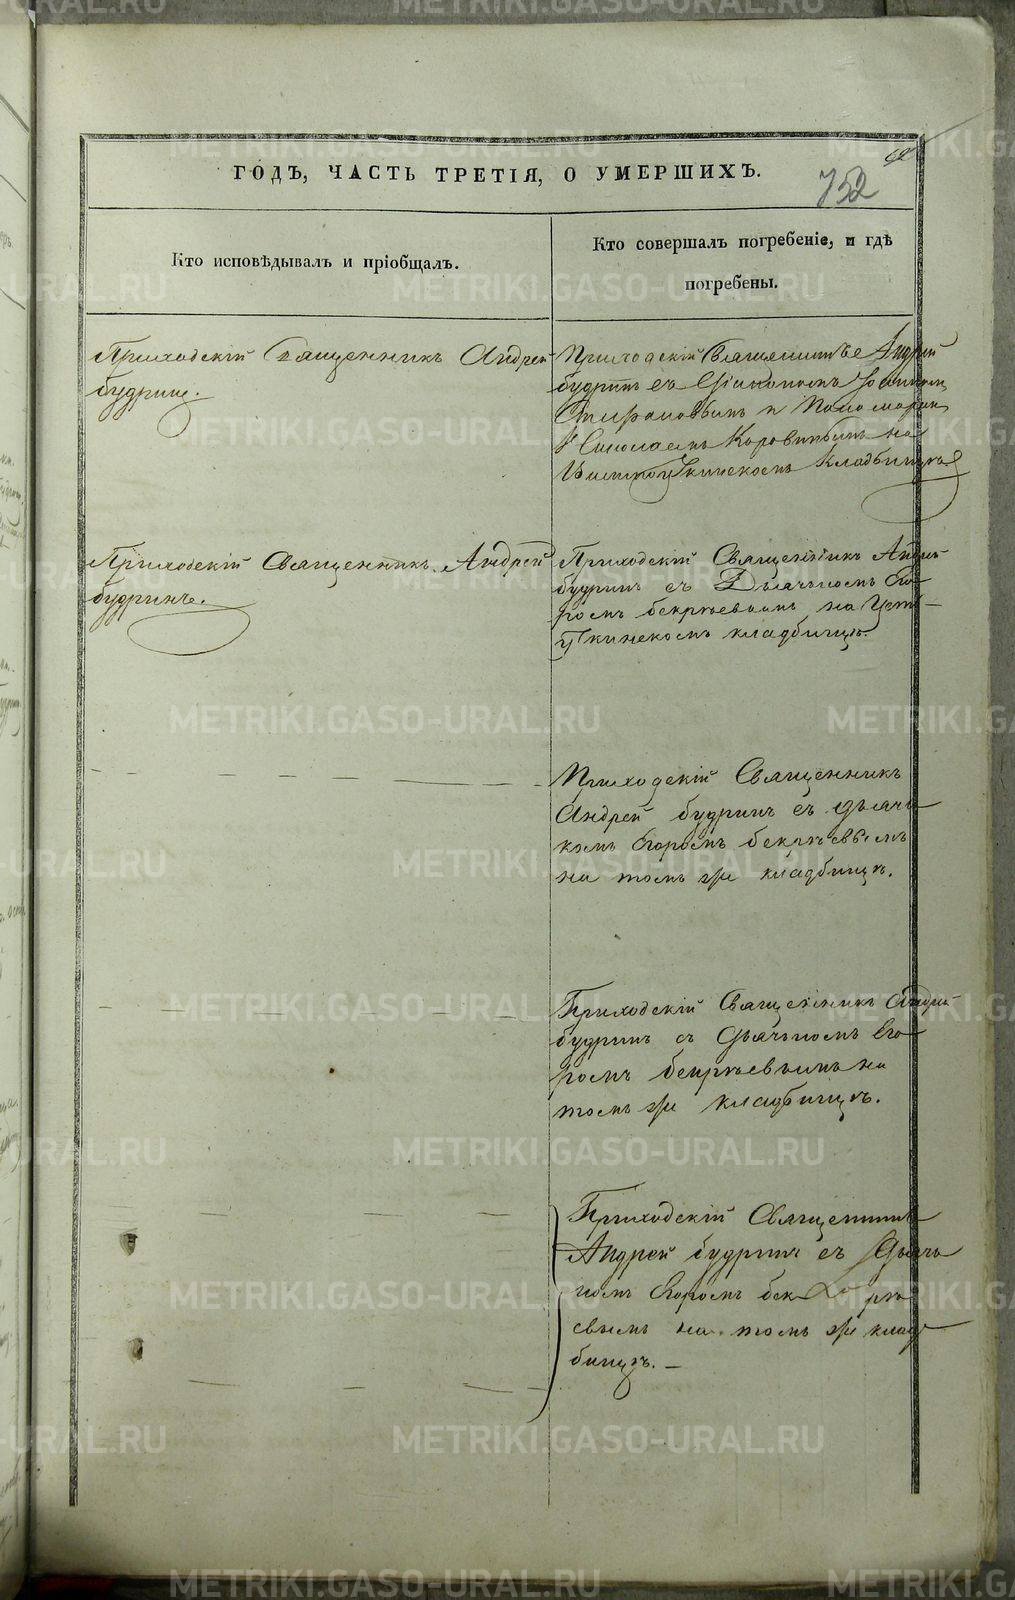 ГОДЪ, ЧАСТЬ ТРЕТІЯ, О УМЕРШИХЪ.
752
Кто исповѣдывалъ и пріобщалъ.
Кто совершалъ погребеніе, и гдѣ
погребены.
Приходскій Священникъ Андрей
Будринъ.
Приходскій Священникъ Андрей
Будринъ съ Діакономъ
и Пономаремъ
Николаемъ Коровинымъ на
Уткинскомъ кладбищѣ
Приходскій Священникъ Андрей
Будринъ.
Приходскій Священникъ Андрей
Будринъ съ Дьячкомъ Его
ромъ Бекрѣевымъ на Усть
Уткинскомъ кладбищѣ.
Приходскій Священникъ
Андрей Будринъ съ Дьяч
комъ Егоромъ Бекрѣевымъ
на томъ же кладбищѣ.
Приходскій Священникъ Андрей
Будринъ съ Дьячкомъ Его
ромъ Бекрѣевымъ на
томъ же кладбищѣ.
Приходскій Священникъ
Андрей Будринъ съ Дьяч
комъ Егоромъ Бекрѣ
евымъ на томъ же клад
бищѣ. —
METRIKI.GASO-URAL.RU